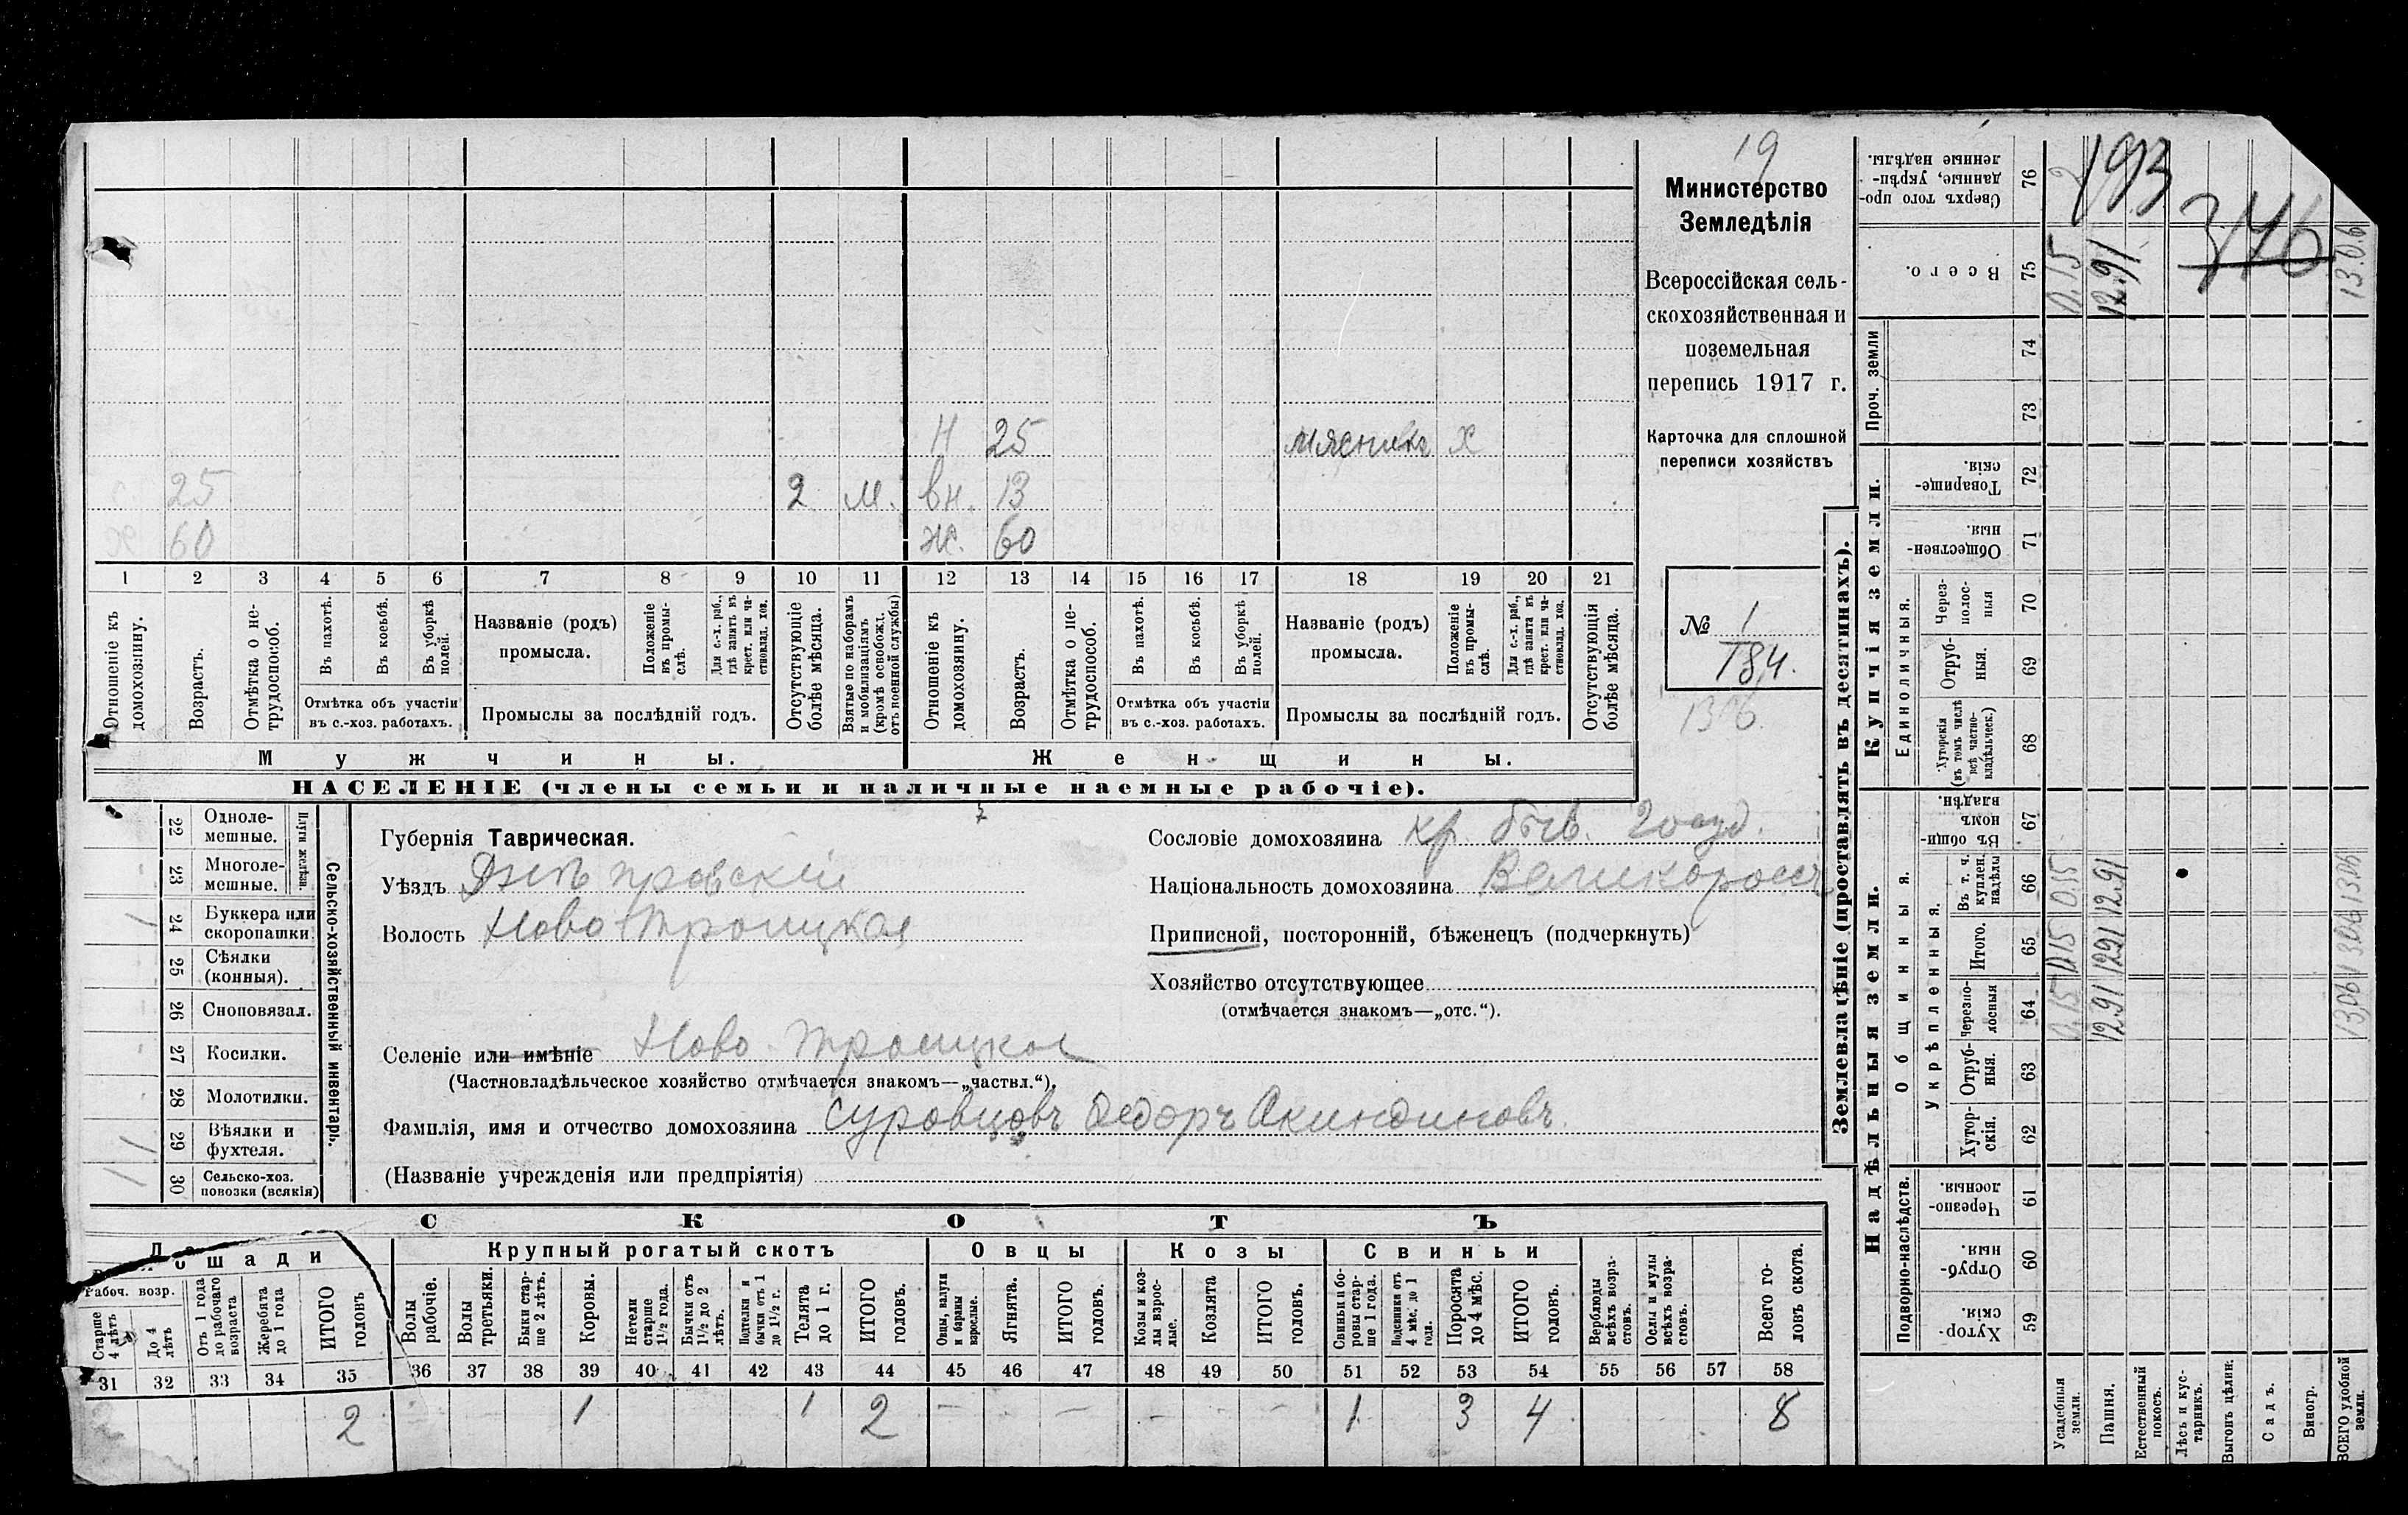 19
Министерство
Земледѣлія
Всероссійская сель-
скохозяйственная и
поземельная
перепись 1917 г.
Карточка для сплошной
переписи хозяйствъ
№ 1
184.
1316.
Н 25 х
25 2 м. вн. 13
х 60 ж. 60
1 2 3 4 5 6 7 8 9 10 11 12 13 14 15 16 17 18 19 20 21
Отношеніе къ домохозяину.
Возрастъ.
Отмѣтка о не-трудоспособ.
Въ пахотѣ.
Въ косьбѣ.
Въ уборкѣ полей.
Отмѣтка объ участіи
въ с.-хоз. работахъ.
Названіе (родъ)
промысла.
Положеніе въ промы-слѣ.
Для с.-х. раб., гдѣ занятъ въ крест. или ча-стновлад. хоз.
Промыслы за послѣдній годъ.
Отсутствующіе болѣе мѣсяца.
Взятые по наборамъ и мобилизаціямъ (кромѣ освобожд. отъ военной службы)
Отношеніе къ домохозяину.
Возрастъ.
Отмѣтка о не-трудоспособ.
Въ пахотѣ.
Въ косьбѣ.
Въ уборкѣ полей.
Отмѣтка объ участіи
въ с.-хоз. работахъ.
Названіе (родъ)
промысла.
Положеніе въ промы-слѣ.
Для с.-х. раб., гдѣ занята въ крест. или ча-стновлад. хоз.
Промыслы за послѣдній годъ.
Отсутствующія болѣе мѣсяца.
Мужчины. Женщины.
НАСЕЛЕНІЕ (члены семьи и наличные наемные рабочіе).
22 Одноле-мешные.
23 Многоле-мешные.
Плуги желѣзн.
24 Буккера или скоропашки
25 Сѣялки (конныя).
26 Сноповязал.
27 Косилки.
28 Молотилки.
29 Вѣялки и фухтеля.
30 Сельско-хоз. повозки (всякія)
Сельско-хозяйственный инвентарь.
Губернія Таврическая.
Уѣздъ Днѣпровскій
Волость Ново-Троицкая
Селеніе или имѣніе Ново Троицкое
(Частновладѣльческое хозяйство отмѣчается знакомъ—„частвл.“).
Фамилія, имя и отчество домохозяина Суровцовъ Федоръ Акиндиновъ
(Названіе учрежденія или предпріятія)
Сословіе домохозяина кр. быв. госуд.
Національность домохозяина Великороссъ
Приписной, посторонній, бѣженецъ (подчеркнуть)
Хозяйство отсутствующее
(отмѣчается знакомъ—„отс.“).
СКОТЪ
Лошади
Рабоч. возр.
Старше 4 лѣтъ
До 4 лѣтъ
Отъ 1 года до рабочаго возраста
Жеребята до 1 года
ИТОГО головъ
Крупный рогатый скотъ
Волы рабочіе.
Волы третьяки.
Быки стар-ше 2 лѣтъ.
Коровы.
Нетели старше 1½ года.
Бычки отъ 1½ до 2 лѣтъ.
Подтелки и бычки отъ 1 до 1½ г.
Телята до 1 г.
ИТОГО головъ.
Овцы
Овцы, валухи и бараны взрослые.
Ягнята.
ИТОГО головъ.
Козы
Козы и коз-лы взрос-лые.
Козлята
ИТОГО головъ.
Свиньи
Свиньи и бо-ровы стар-ше 1 года.
Подсвинки отъ 4 мѣс. до 1 года.
Поросята до 4 мѣс.
ИТОГО головъ.
Верблюды всѣхъ возра-стовъ.
Ослы и мулы всѣхъ возра-стовъ.
Всего го-ловъ скота.
31 32 33 34 35 36 37 38 39 40 41 42 43 44 45 46 47 48 49 50 51 52 53 54 55 56 57 58
2 1 1 2 — — — — — — 1 3 4 8
Землевладѣніе (проставлять въ десятинахъ).
Надѣльныя земли. Купчія земли. Проч. земли
Подворно-наслѣдств.
Общинныя.
Укрѣпленныя.
Единоличныя.
Хутор-скія. 59
Отруб-ныя. 60
Черезпо-лосныя. 61
Хутор-скія. 62
Отруб-ныя. 63
Черезпо-лосныя 64
Итого. 65
Въ т. ч. куплен. надѣлы 66
Въ общи-номъ владѣн. 67
Хуторскія (въ томъ числѣ всѣ частно-владѣльческ.) 68
Отруб-ныя. 69
Через-полос-ныя 70
Обществен-ныя. 71
Товарище-скія. 72
73
74
Всего. 75
Сверхъ того про-данные, укрѣп-ленные надѣлы. 76
Усадебныя земли. 0.15 0.15 0.15 0.15 2
Пашня. 12.91 12.91 12.91 12.91
Естественный покосъ.
Лѣсъ и кус-тарникъ.
Выгонъ цѣлин.
Садъ.
Виногр.
ВСЕГО удобной земли. 13.06 13.06 13.06 13.06
193
376